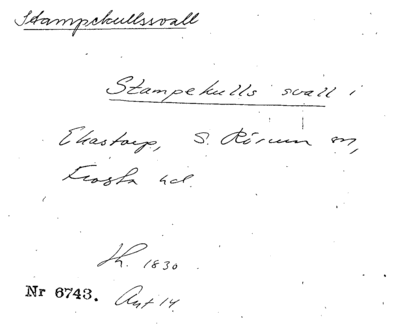 Stampekullssvall
Stampekulls svall i
Ekastorp, S. Rörum sn,
Frosta hd.
Sk. 1830
Nr 6743. Avt 14